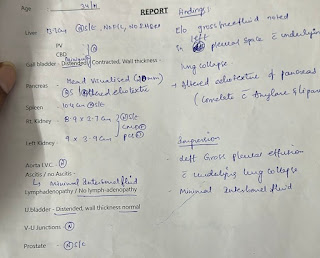 Age 34/M REPORT Findings:
Liver 13.2cm (N) S/E, No FL, No IHBRD
E/o gross free fluid noted
In left pleural space c̄ underlying
lung collapse
PV
CBD (N)
Gall bladder - Distended / Contracted, Wall Thickness -
- Altered echotexture of pancreas
Pancreas - Head visualised
(N) S Altered echotexture
(Correlate c̄ Amylase & Lipase
Spleen 10.4 cm (N) S/E
Rt. Kidney 8.9 x 3.7 cm (N) S/E
CMD (N)
Left Kidney 9 x 3.9 cm PCS (N)
Impression
Aorta I.V.C. - (N)
- Left Gross pleural effusion
Ascitis / no Ascitis -
c̄ underlying lung collapse
↳ Minimal Interbowel fluid
- Minimal Interbowel fluid
Lymphadenopathy / No lymph-adenopathy
U.bladder - Distended, wall thickness normal
V-U Junctions - (N)
Prostate - (N) S/E